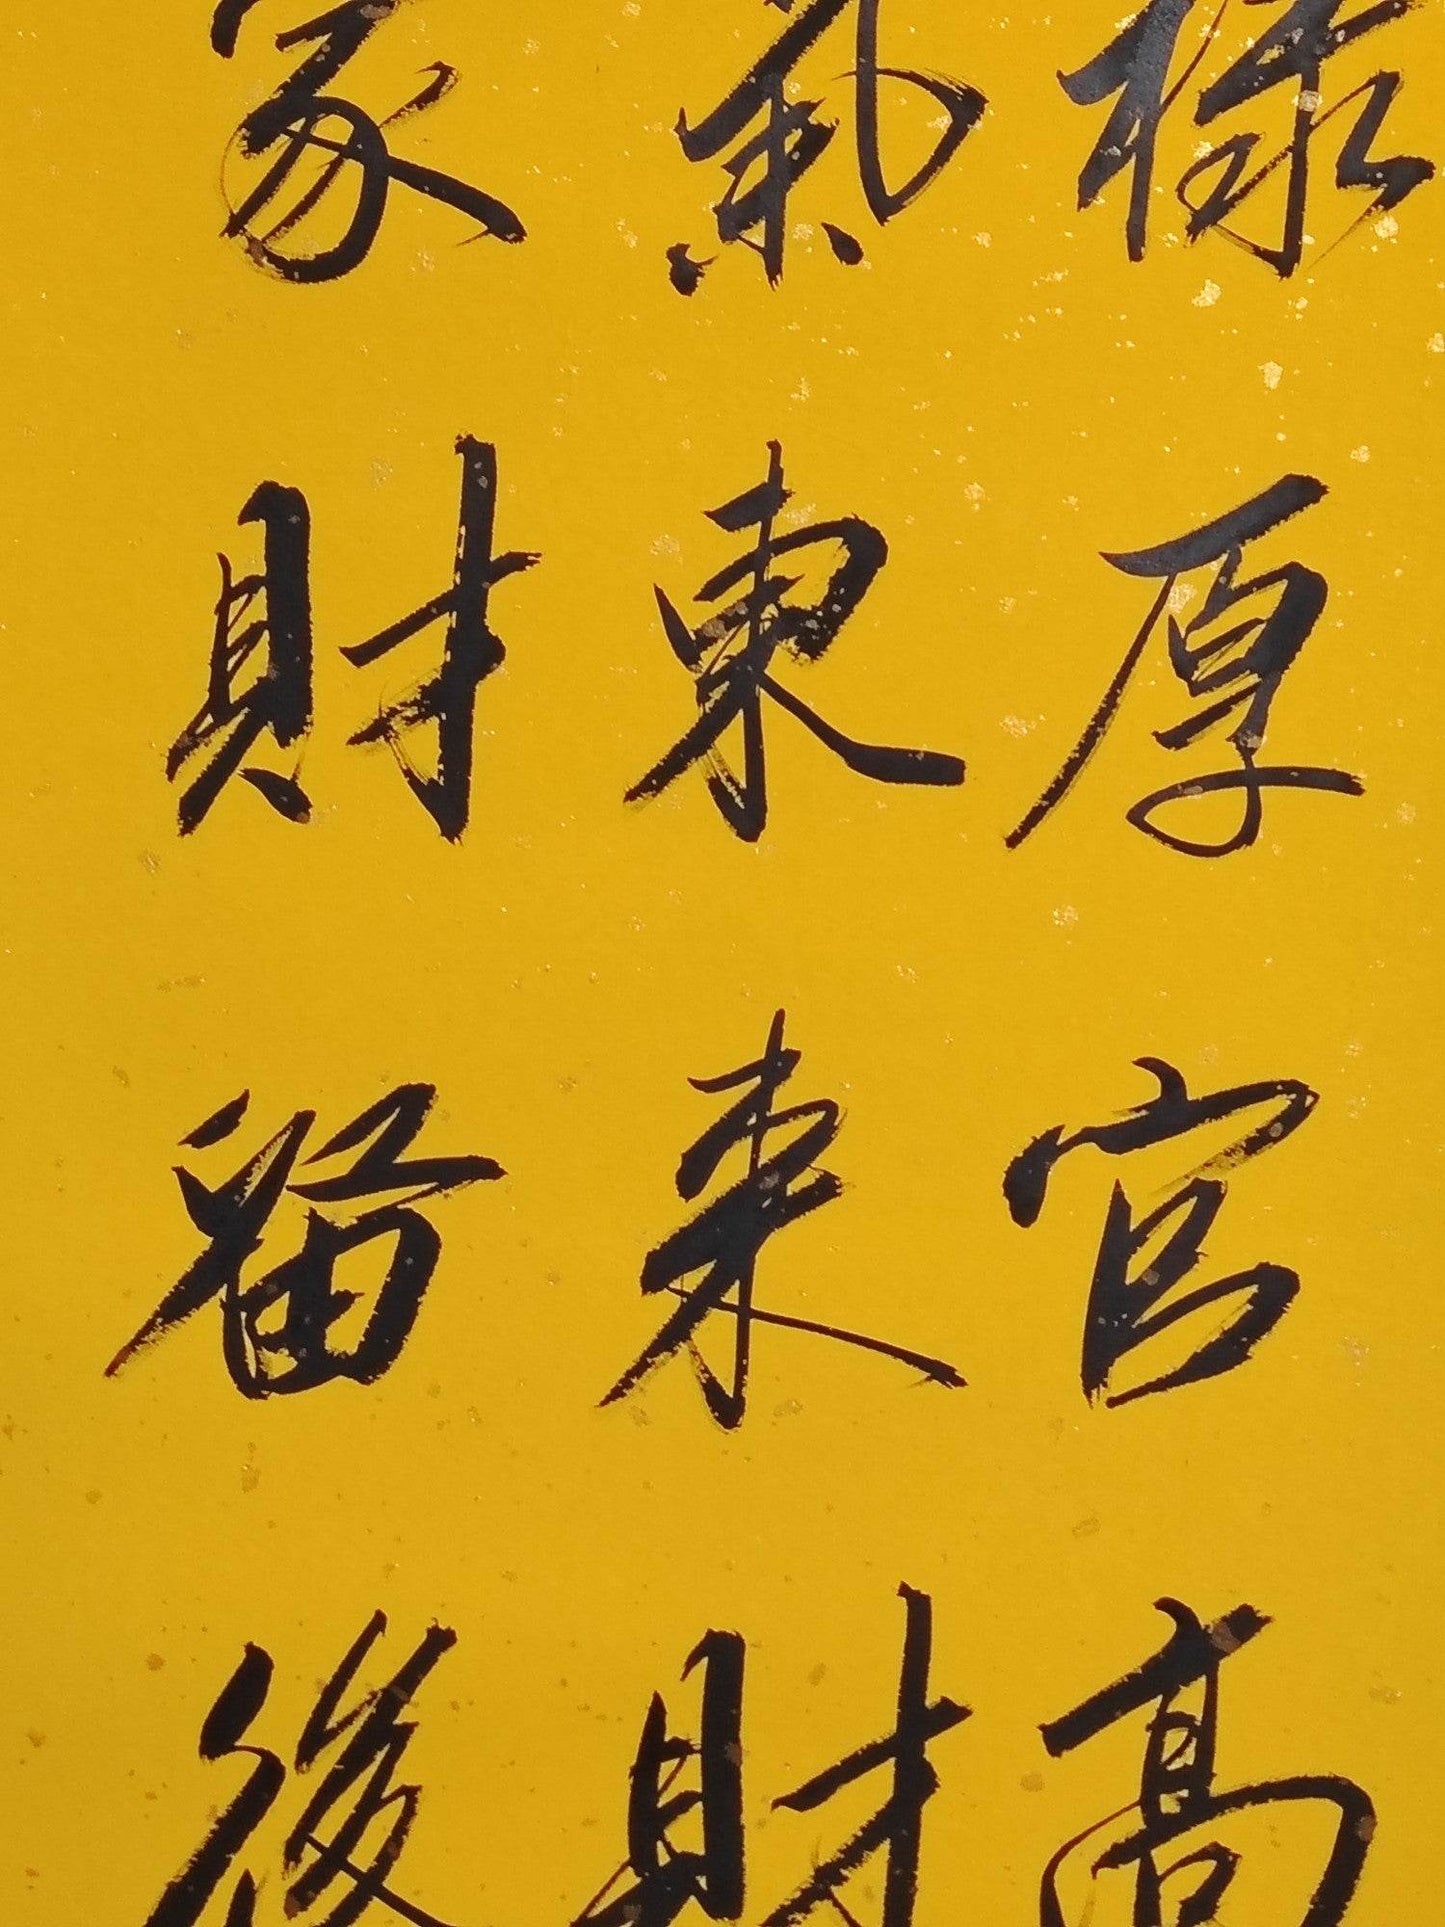 祿厚官高
氣東來財
家財留後